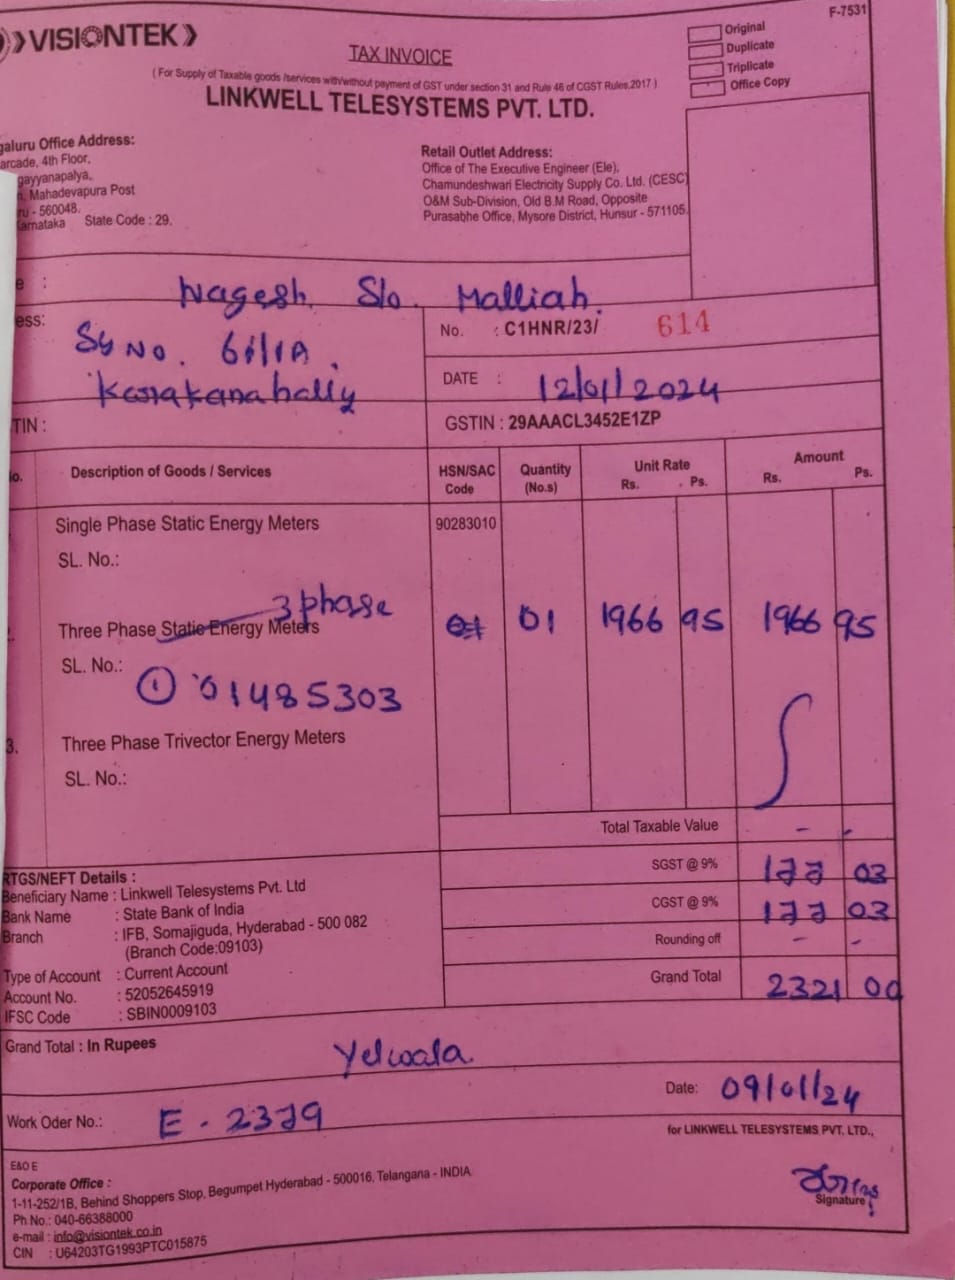 VISIONTEK
F-7531
TAX INVOICE
Original
Duplicate
Triplicate
Office Copy
( For Supply of Taxable goods /services with/without payment of GST under section 31 and Rule 46 of CGST Rules,2017 )
LINKWELL TELESYSTEMS PVT. LTD.
galuru Office Address:
arcade, 4th Floor,
gayyanapalya,
Mahadevapura Post
ru - 560048.
Karnataka State Code : 29.
Retail Outlet Address:
Office of The Executive Engineer (Ele),
Chamundeshwari Electricity Supply Co. Ltd. (CESC)
O&M Sub-Division, Old B.M Road, Opposite
Purasabhe Office, Mysore District, Hunsur - 571105.
e : Nagesh. S/o. Malliah.
ess: Sy No. 61/1A.
Karakanahally
No. : C1HNR/23/ 614
DATE : 12/01/2024
TIN :
GSTIN : 29AAACL3452E1ZP
o. Description of Goods / Services HSN/SAC Code Quantity (No.s) Unit Rate Rs. Ps. Amount Rs. Ps.
Single Phase Static Energy Meters 90283010
SL. No.:
3 phase
2. Three Phase Static Energy Meters 01 1966 95 1966 95
SL. No.:
① 01485303
3. Three Phase Trivector Energy Meters
SL. No.:
Total Taxable Value - -
SGST @ 9% 177 03
CGST @ 9% 177 03
Rounding off - -
Grand Total 2321 00
RTGS/NEFT Details :
Beneficiary Name : Linkwell Telesystems Pvt. Ltd
Bank Name : State Bank of India
Branch : IFB, Somajiguda, Hyderabad - 500 082
(Branch Code:09103)
Type of Account : Current Account
Account No. : 52052645919
IFSC Code : SBIN0009103
Grand Total : In Rupees Yelwala
Work Oder No.: E - 2379
Date: 09/01/24
for LINKWELL TELESYSTEMS PVT. LTD.,
E&O E
Corporate Office :
1-11-252/1B, Behind Shoppers Stop, Begumpet Hyderabad - 500016, Telangana - INDIA
Ph No.: 040-66388000
e-mail : info@visiontek.co.in
CIN : U64203TG1993PTC015875
Signature